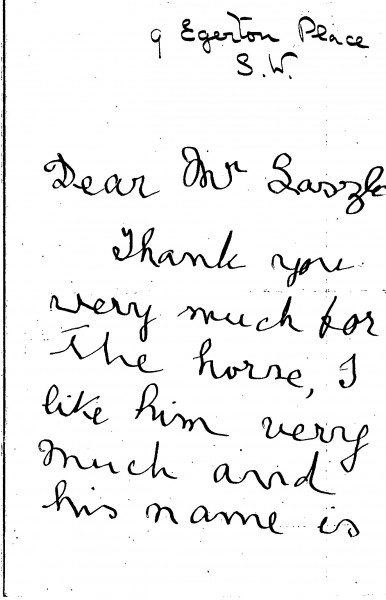 9 Egerton Place
S.W.
Dear Mr Laszlo
Thank you
very much for
the horse, I
like him very
much and
his name is